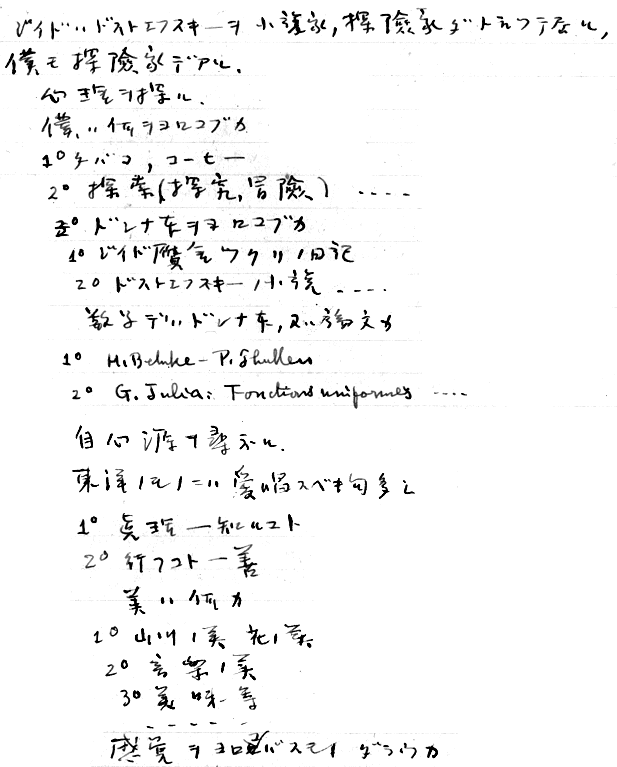 ジイドハドストエフスキーヲ小説家,探險家ダトイツテ居ル,
僕モ探險家デアル.
心理ヲ探ル.
僕ハ何ヲヨロコブカ
1° タバコ, コーヒー
2° 探索(探究,冒險) ....
ドンナ本ヲヨロコブカ
1° ジイド贋金ツクリノ日記
2° ドストエフスキーノ小説 ....
数学デハドンナ本,又ハ論文カ
1° H. Behnke - P. Thullen
2° G. Julia: Fonctions uniformes ....
自心ノ源ヲ尋ネル.
東洋ノモノニハ愛唱スベキ句多シ
1° 眞理 — 知ルコト
2° 行フコト — 善
美ハ何カ
1° 山川ノ美 花ノ美
2° 音楽ノ美
3° 美味ノ等
- - - - - -
感覚ヲヨロコバスモノダラウカ